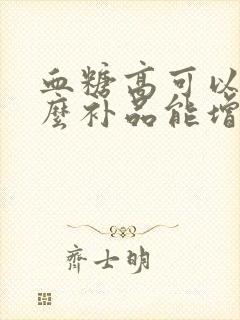 血糖高可以
麽补品能增
齊士明